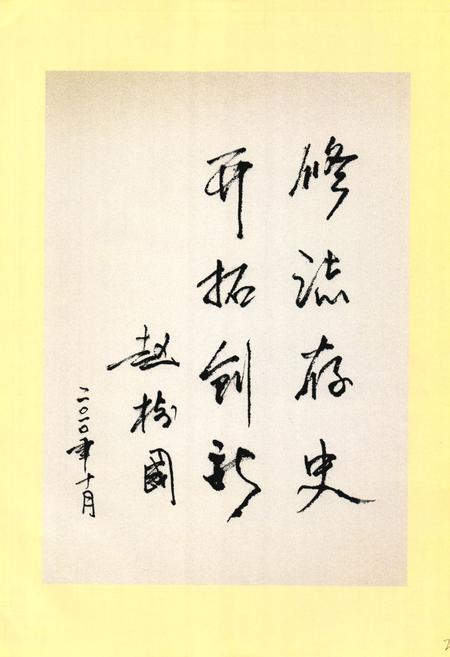 修誌存史
开拓創新
赵树國
二〇一〇年十月